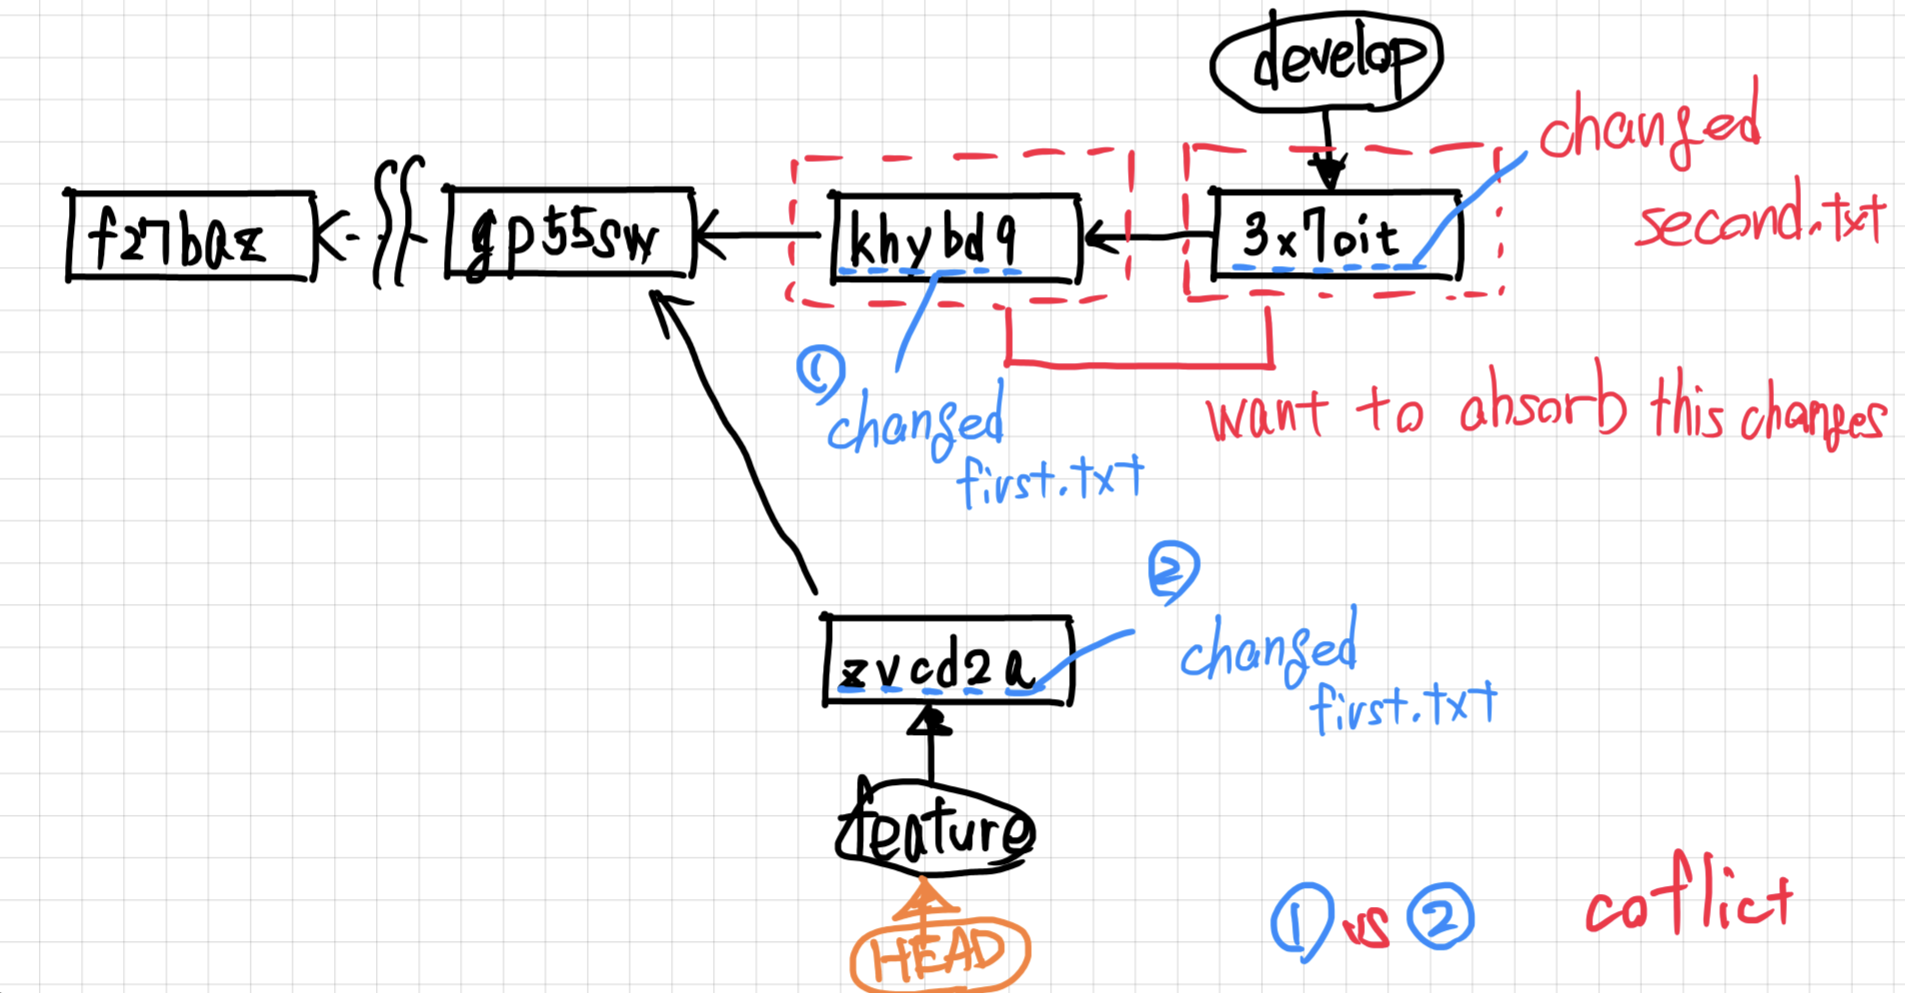 develop
changed
second.txt
f27baz
gp55sw
khybd9
3x7oit
①
changed
first.txt
want to absorb this changes
②
changed
first.txt
zvcd2a
feature
HEAD
① vs ② coflict